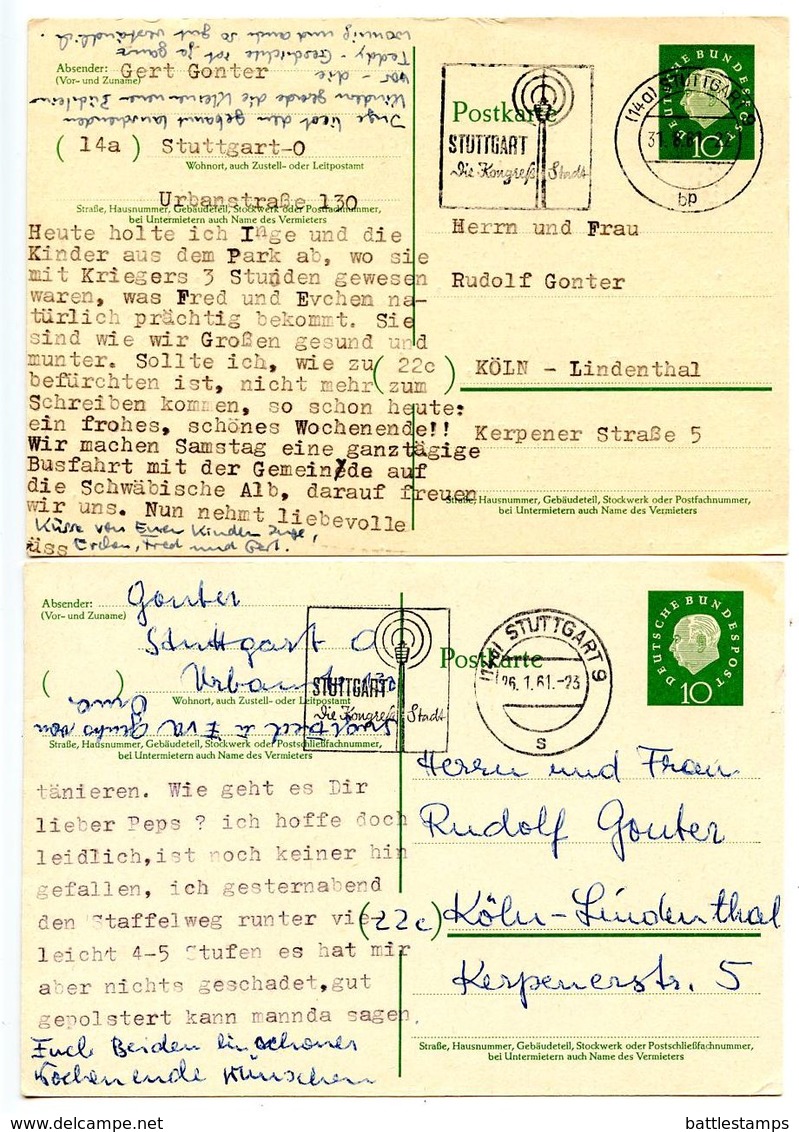 Absender: Gert Gonter
(Vor- und Zuname)
(14a) Stuttgart-O
Wohnort, auch Zustell- oder Leitpostamt
Urbanstraße 130
Straße, Hausnummer, Gebäudeteil, Stockwerk oder Postfachnummer,
bei Untermietern auch Name des Vermieters
Inge liest den gebannt lauschenden
Kindern gerade die kleinen
vor - die
Teddy-Geschichte ist ja ganz
wonnig und auch so gut verständlich.
Heute holte ich Inge und die
Kinder aus dem Park ab, wo sie
mit Kriegers 3 Stunden gewesen
waren, was Fred und Evchen na-
türlich prächtig bekommt. Sie
sind wie wir Großen gesund und
munter. Sollte ich, wie zu
befürchten ist, nicht mehr zum
Schreiben kommen, so schon heute:
ein frohes, schönes Wochenende!!
Wir machen Samstag eine ganztägige
Busfahrt mit der Gemeinde auf
die Schwäbische Alb, darauf freuen
wir uns. Nun nehmt liebevolle
Küsse von Euren Kindern Inge,
üss Evchen, Fred und Gert.
Postkarte
STUTTGART
Die Kongreß-Stadt
(14a) STUTTGART 9
31.8.61.-22
bp
DEUTSCHE BUNDESPOST
10
Herrn und Frau
Rudolf Gonter
(22c) KÖLN - Lindenthal
Kerpener Straße 5
Straße, Hausnummer, Gebäudeteil, Stockwerk oder Postfachnummer,
bei Untermietern auch Name des Vermieters
Absender: Gonter
(Vor- und Zuname)
Stuttgart O
( ) Urbanstr.
Wohnort, auch Zustell- oder Leitpostamt
Straße, Hausnummer, Gebäudeteil, Stockwerk oder Postschließfachnummer,
bei Untermietern auch Name des Vermieters
Fred u Eva Gruß von
Oma
tänieren. Wie geht es Dir
lieber Peps ? ich hoffe doch
leidlich,ist noch keiner hin
gefallen, ich gesternabend
den Staffelweg runter vie-
leicht 4-5 Stufen es hat mir
aber nichts geschadet,gut
gepolstert kann mannda sagen.
Euch Beiden ein schönes
Wochenende wünschen
Postkarte
STUTTGART
Die Kongreß-Stadt
(14a) STUTTGART 9
26.1.61.-23
s
DEUTSCHE BUNDESPOST
10
Herrn und Frau
Rudolf Gonter
(22c) Köln-Lindenthal
Kerpenerstr. 5
Straße, Hausnummer, Gebäudeteil, Stockwerk oder Postschließfachnummer,
bei Untermietern auch Name des Vermieters
battlestamps